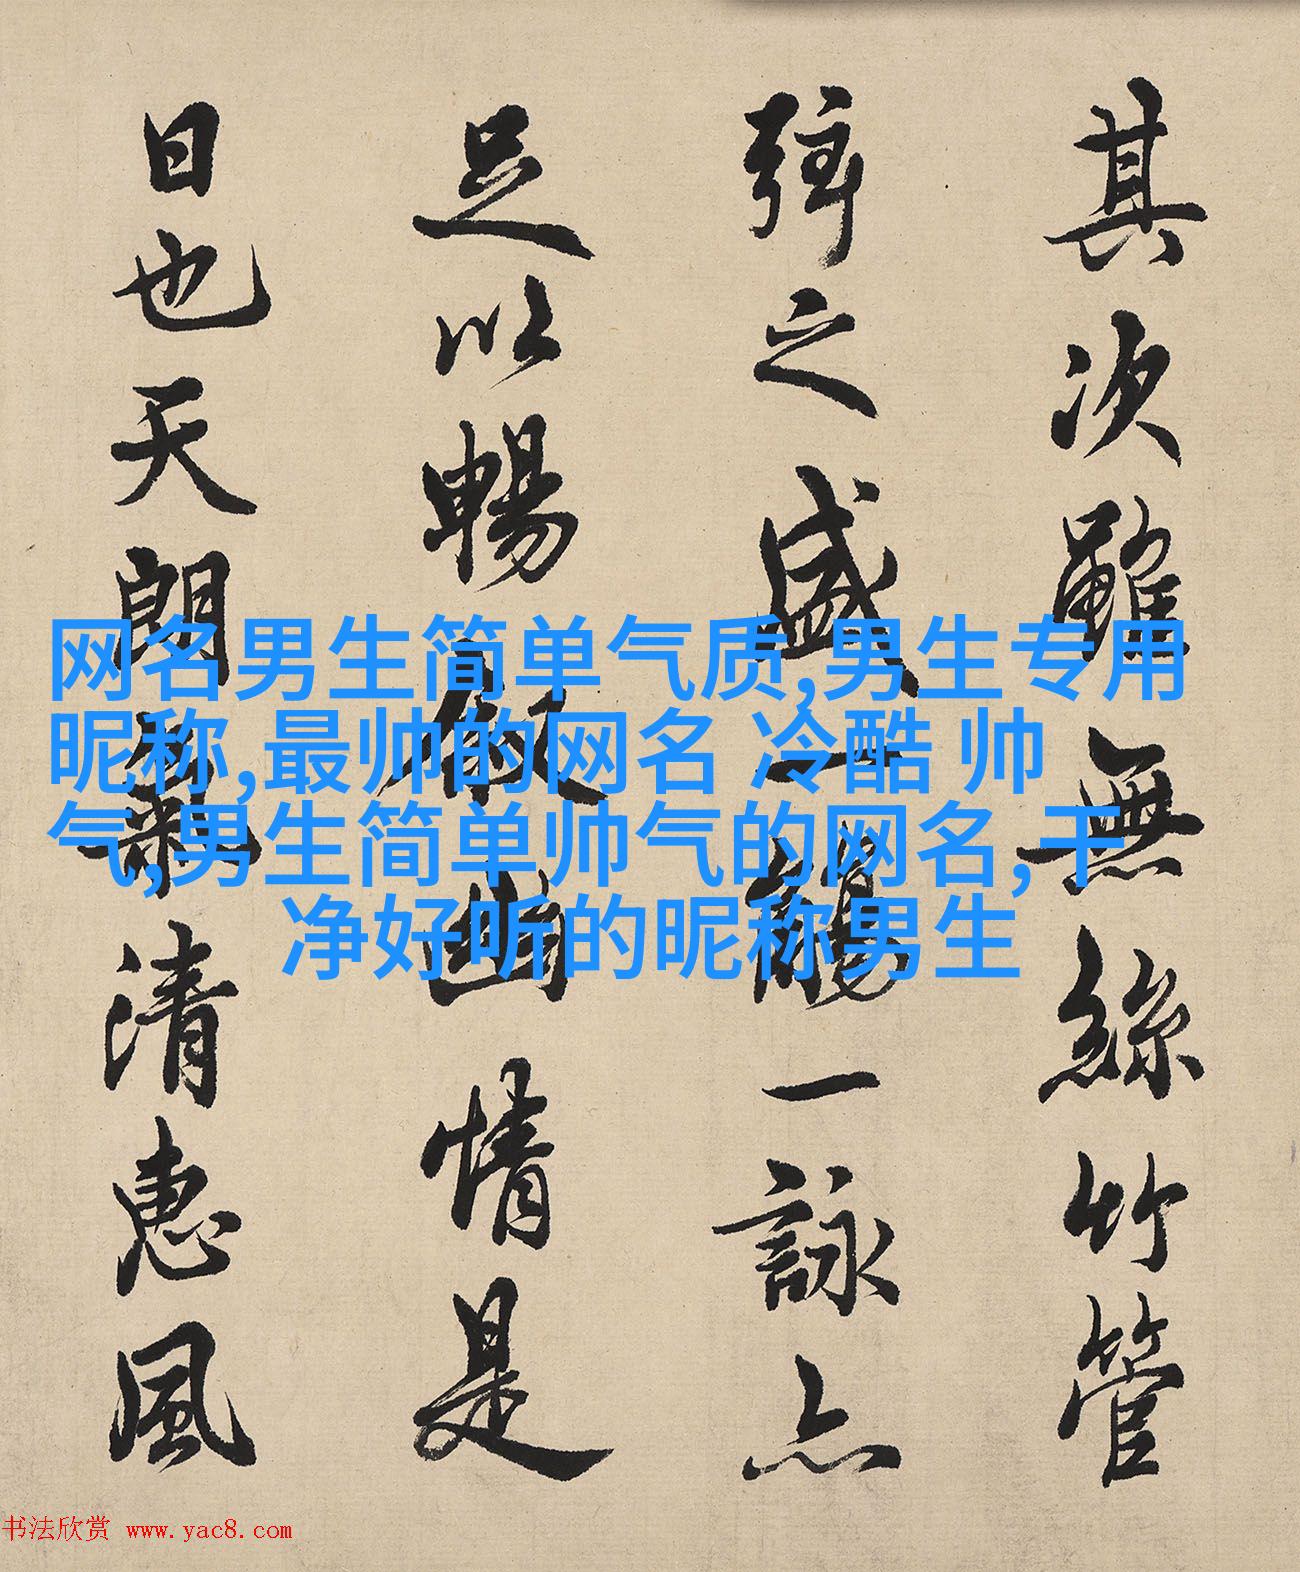 其次雖無絲竹管
弦之盛一觴一詠亦
足以暢敘幽情是
日也天朗氣清惠風
网名男生简单气质,男生专用
昵称,最帅的网名 冷酷 帅
气,男生简单帅气的网名,干
净好听的昵称男生
书法欣赏 www.yac8.com